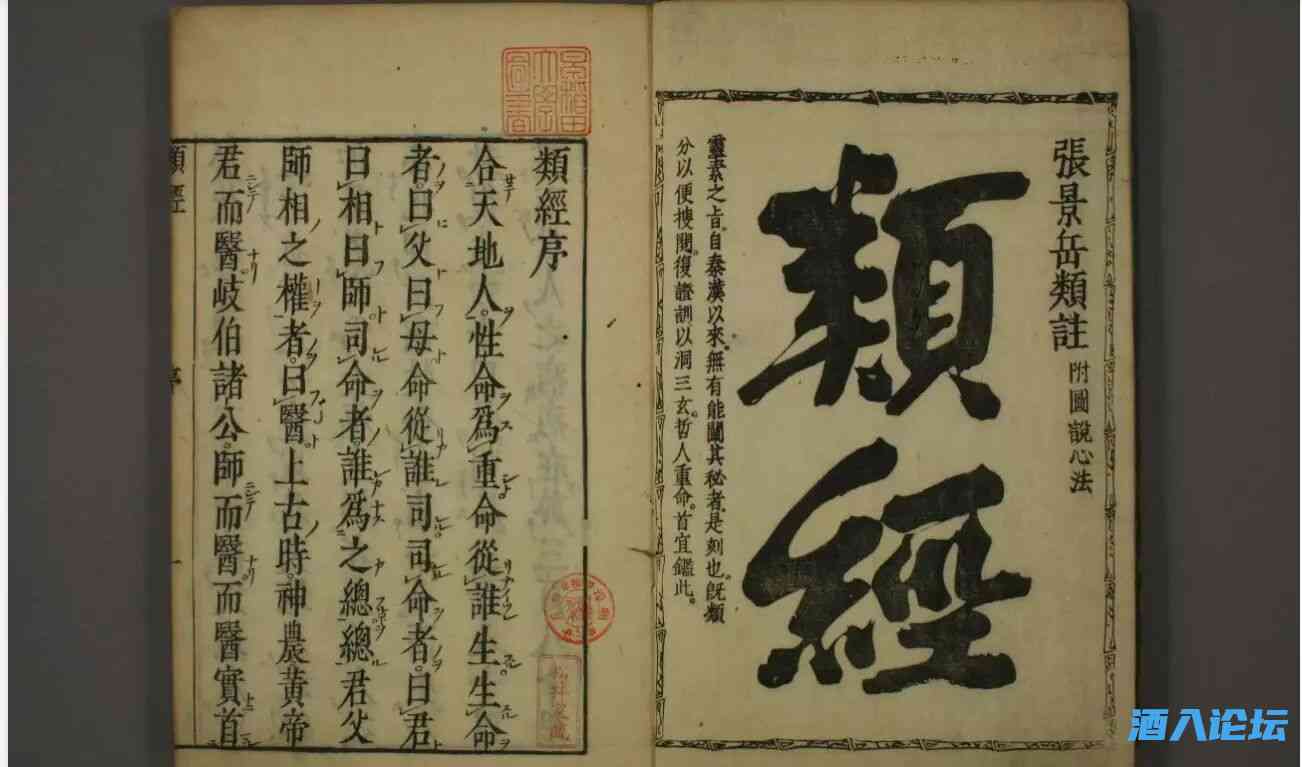 張景岳類註 附圖說心法
類經
靈素之旨。自秦漢以來。無有能闡其秘者。是刻也。既類
分以便搜閱。復證訓以洞三玄。哲人重命。首宜鑑此。
類經序
合天地人。性命為重。命從誰生。生命
者。曰父曰母。命從誰司。司命者。曰君
曰相曰師。司命者。誰為之總。總君父
師相之權者。曰醫。上古時。神農黃帝
君而醫。岐伯諸公。師而醫。而醫實首
類經
序
一
酒入论坛